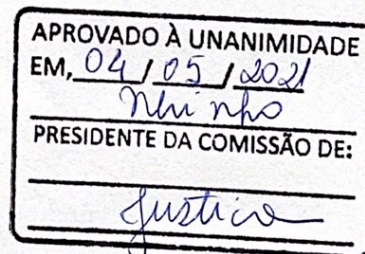 APROVADO À UNANIMIDADE
EM, 04 / 05 / 2021
PRESIDENTE DA COMISSÃO DE:
Justica